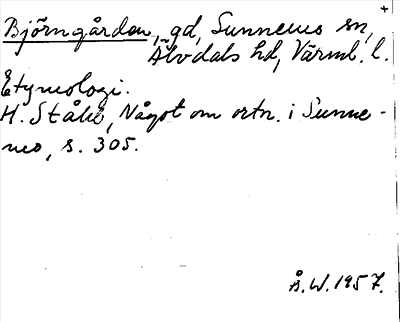 Björngården, gd, Sunnemo sn,
Älvdals hd, Värml. l.
Etymologi.
H. Ståhl, Något om ortn. i Sunne-
mo, s. 305.
Å.W. 1957.